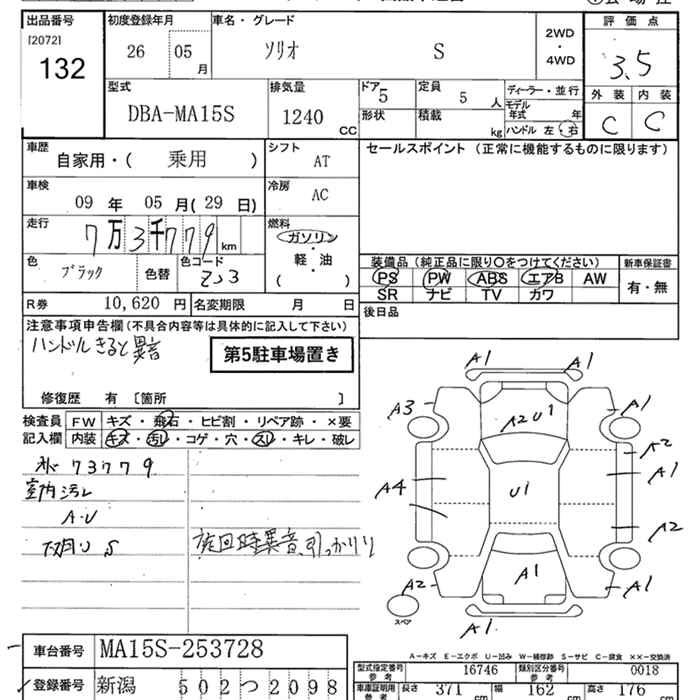 出品番号 初度登録年月 車名・グレード 評価点
[2072]
132
26 05 月 ソリオ S
2WD
・
4WD
3.5
型式 排気量 ドア 定員 ディーラー・並行 外装 内装
DBA-MA15S 1240 CC 5 5 人
モデル年式 年
形状 積載 kg ハンドル 左・右 C C
車歴 シフト セールスポイント (正常に機能するものに限ります)
自家用・( 乗用 ) AT
車検 冷房
09 年 05 月(29 日) AC
走行 燃料
7万3千779 km ガソリン
軽・油
( )
色 色コード
ブラック 色替 ZJ3
装備品 (純正品に限り○をつけてください) 新車保証書
PS PW ABS エアB AW 有・無
SR ナビ TV カワ
R券 10,620 円 名変期限 月 日 後日品
注意事項申告欄(不具合内容等は具体的に記入して下さい)
ハンドルきると異音
第5駐車場置き
修復歴 有 [箇所 ]
検査員 FW キズ・飛石・ヒビ割・リペア跡・×要
記入欄 内装 キズ・汚レ・コゲ・穴・スレ・キレ・破レ
73779
室内汚レ
A・U
下廻り S 旋回時異音、引っかかり
A1 A1
A3 A2U1 A1
A2
A4 U1 A1
A2
A2 A1 A1
スペア
A1
A-キズ E-エクボ U-凹み W-補修跡 S-サビ C-腐食 ××-交換済
車台番号 MA15S-253728
型式指定番号 参考 16746 類別区分番号 参考 0018
登録番号 新潟 502つ2098
車庫証明用 参考 長さ 371 cm 幅 162 cm 高さ 176 cm